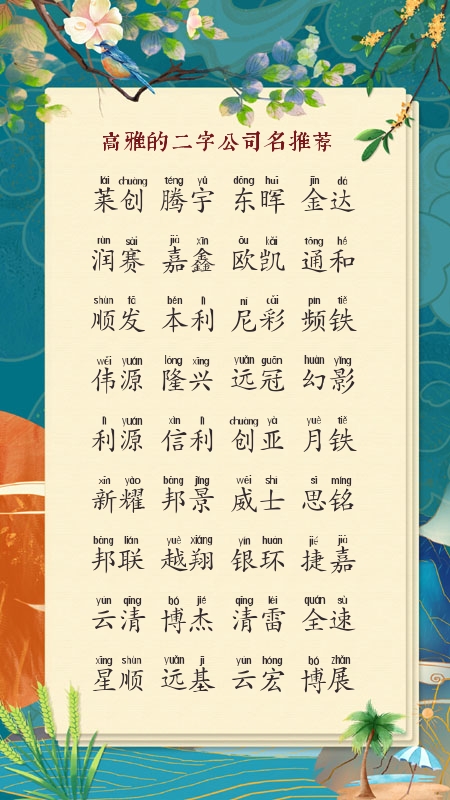 高雅的二字公司名推荐
lái chuàng téng yǔ dōng huī jīn dá
莱创 腾宇 东晖 金达
rùn sài jiā xīn ōu kǎi tōng hé
润赛 嘉鑫 欧凯 通和
shùn fā běn lì ní cǎi pín tiě
顺发 本利 尼彩 频铁
wěi yuán lóng xīng yuǎn guān huàn yǐng
伟源 隆兴 远冠 幻影
lì yuán xìn lì chuàng yà yuè tiě
利源 信利 创亚 月铁
xīn yào bāng jǐng wēi shì sī míng
新耀 邦景 威士 思铭
bāng lián yuè xiáng yín huán jié jiā
邦联 越翔 银环 捷嘉
yún qīng bó jié qīng léi quán sù
云清 博杰 清雷 全速
xīng shùn yuǎn jī yún hóng bó zhǎn
星顺 远基 云宏 博展